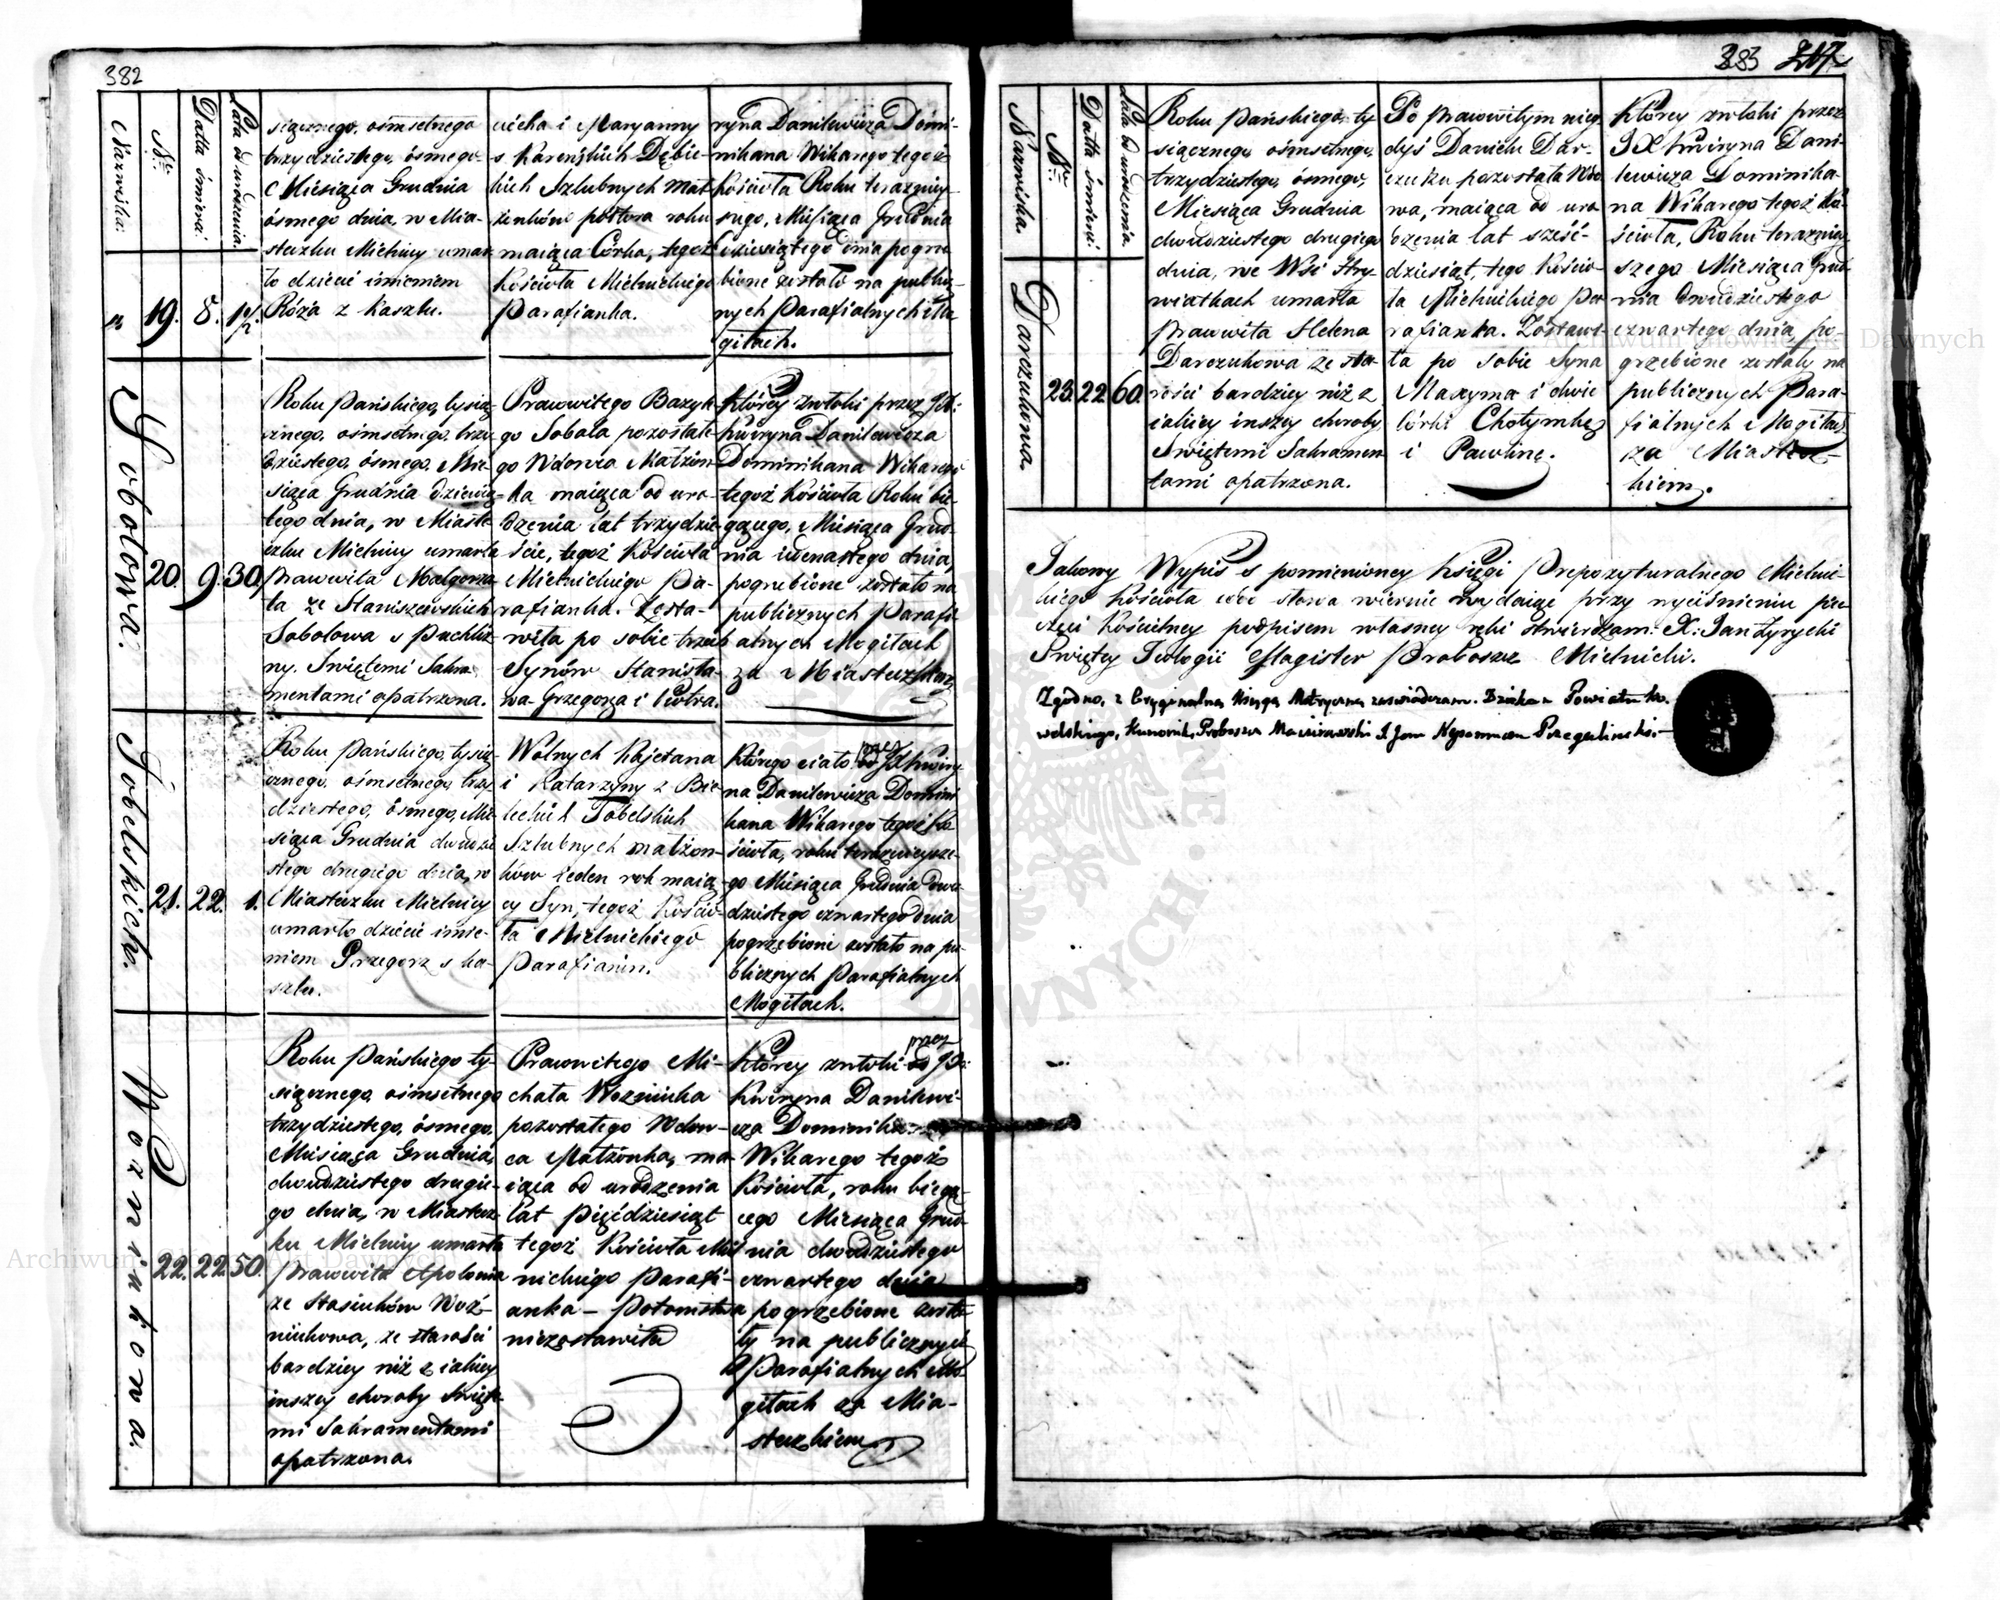 382
Nazwiska.
No:
Datta śmierci.
Lata od urodzenia.
siącznego, ośmsetnego
trzydziestego, ósmego
Miesiąca Grudnia
ósmego dnia, w Mia-
steczku Mielnicy umar
ło dziecie imieniem
Róża z kaszlu.
19. 8. 1½.
ciecha i Maryanny
z Kareńskich Dębic-
kich Szlubnych mał
żonków półtora roku
maiąca Córka, tegoż
Kościoła Mielnickiego
Parafianka.
ryna Danilewicza Domi-
nikana Wikarego tegoż
Kościoła Roku terazniey-
szego, Miesiąca Grudnia
dziesiątego dnia pogrze
bione zostało na publicz-
nych Parafialnych Mo
giłach.
Sobolowa.
20. 9. 30.
Roku Pańskiego, tysią-
cznego, ośmsetnego, trzy
dziestego, ósmego, Mie-
siąca Grudnia dziewią-
tego dnia, w Miaste-
czku Mielnicy umarła
Prawowita Małgorza-
ta ze Staniszewskich
Sobolowa z Puchli-
ny, Świętemi Sakra-
mentami opatrzona.
Prawowitego Bazyle-
go Sobola pozostałe-
go Wdowca Małżon-
ka maiąca od uro-
dzenia lat trzydzie-
ście, tegoż Kościoła
Mielnickiego Pa-
rafianka. Zosta-
wiła po sobie trzech
Synów Stanisła-
wa Grzegorza i Piotra.
Którey zwłoki przez JX:
Kwiryna Danilewicza
Dominikana Wikarego
tegoż Kościoła Roku bie-
gącego, Miesiąca Grud-
nia iedenastego dnia,
pogrzebione zostało na
publicznych Parafi-
alnych Mogiłach
za Miasteczkiem
Tobelskich.
21. 22. 1.
Roku Pańskiego, tysią-
cznego, ośmsetnego, trzy
dziestego, ósmego, Mie-
siąca Grudnia dwudzie
stego drugiego dnia, w
Miasteczku Mielnicy
umarło dziecie imie-
niem Grzegorz z ka-
szlu.
Wolnych Kajetana
i Katarzyny z Bie-
leckich Tobelskich
Szlubnych małżon-
ków ieden rok maią-
cy Syn, tegoż Kościo-
ła Mielnickiego
Parafianin.
Którego ciało przez JX Kwiry-
na Danilewicza Domini
kana Wikarego tegoż Ko
ścioła, roku teraznieysze-
go Miesiąca Grudnia dwu-
dziestego czwartego dnia
pogrzebione zostało na pu-
blicznych Parafialnych
Mogiłach.
Wozniukowa.
22. 22. 50.
Roku Pańskiego ty-
siącznego, ośmsetnego
trzydziestego, ósmego,
Miesiąca Grudnia,
dwudziestego drugie-
go dnia, w Miastecz-
ku Mielnicy umarła
Prawowita Apolonia
ze Stasiuków Woź-
niukowa, ze starości
bardziey niż z iakiey
inszey choroby Święte-
mi Sakramentami
opatrzona.
Prawowitego Mi-
chała Wozniuka
pozostałego Wdow-
ca Małżonka, ma-
iąca od urodzenia
lat pięćdziesiąt
tegoż Kościoła Miel
nickiego Parafi-
anka – Potomstwa
niezostawiła
Którey zwłoki przez JX:
Kwiryna Danilewi-
cza Dominika
Wikarego tegoż
Kościoła, roku biegą-
cego Miesiąca Grud-
nia dwudziestego
czwartego dnia
pogrzebione zosta-
ły na publicznych
Parafialnych Mo-
giłach za Mia-
steczkiem
383 217
Nazwiska.
No:
Datta śmierci.
Lata od urodzenia.
Darczukowa.
23. 22. 60.
Roku Pańskiego, ty-
siącznego, ośmsetnego,
trzydziestego, ósmego,
Miesiąca Grudnia
dwudziestego drugiego
dnia, we Wsi Hry-
wiatkach umarła
Prawowita Helena
Darczukowa ze sta-
rości bardziey niż z
iakiey inszey choroby
Świętemi Sakramen
tami opatrzona.
Po Prawowitym nieg-
dyś Danielu Dar-
czuku pozostała Wdo
wa, maiąca od uro
dzenia lat sześć-
dziesiąt, tego Kościo-
ła Mielnickiego Pa-
rafianka. Zostawi-
ła po sobie Syna
Maxyma i dwie
Córki Chotymkę
i Pawlinę.
Którey zwłoki przez
JX Kwiryna Dani-
lewicza Dominika-
na Wikarego tegoż Ko-
ścioła, Roku terazniey-
szego Miesiąca Grud-
nia dwudziestego
czwartego dnia, po-
grzebione zostały na
publicznych Para-
fialnych Mogiłach
za Miastecz-
kiem.
Takowy Wypis z pomienioney Księgi Prepozyturalnego Mielnic-
kiego Kościoła co do słowa wiernie wydaiąc przy wyciśnieniu pie-
częci Kościelney podpisem własney ręki stwierdzam. X: Jan Żyrycki
Świętey Teologii Magister Proboszcz Mielnicki.
Zgodno, z Oryginalną Księgą Metryczną zaświadczam. Dziekan Powiatu Ko-
welskiego, Kanonik, Proboszcz Maciiowski X Jan Nepomucen Przegaliński.
Archiwum Główne Akt Dawnych
Archiwum Główne Akt Dawnych